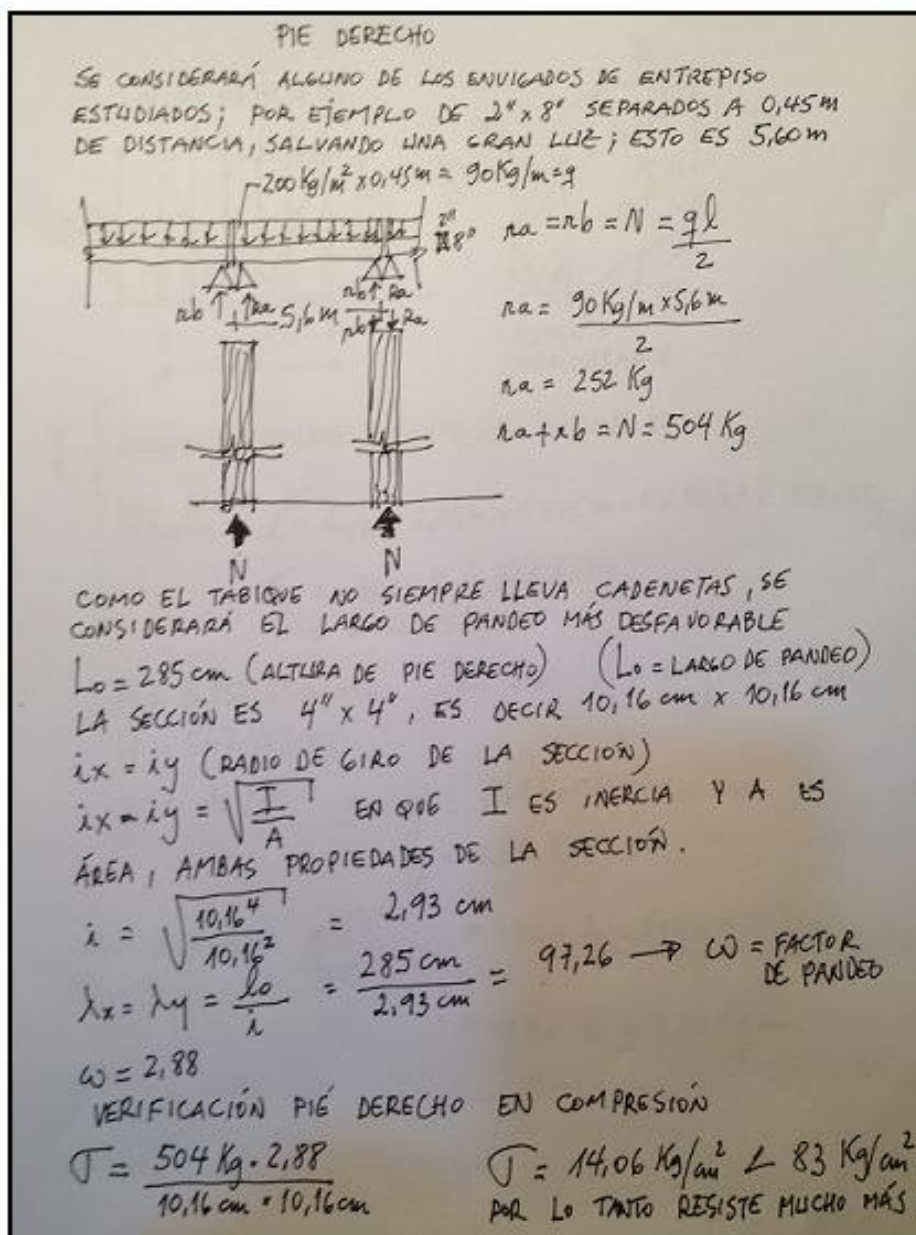 PIE DERECHO
SE CONSIDERARÁ ALGUNO DE LOS ENVIGADOS DE ENTREPISO
ESTUDIADOS; POR EJEMPLO DE 2" x 8" SEPARADOS A 0,45 m
DE DISTANCIA, SALVANDO UNA GRAN LUZ; ESTO ES 5,60 m
200 Kg/m² x 0,45 m = 90 Kg/m = q
2"
8"
ra = rb = N = ql/2
rb Ra 5,6 m rb Ra
rb Ra
ra = 90 Kg/m x 5,6 m / 2
ra = 252 Kg
ra + rb = N = 504 Kg
N N
COMO EL TABIQUE NO SIEMPRE LLEVA CADENETAS, SE
CONSIDERARÁ EL LARGO DE PANDEO MÁS DESFAVORABLE
Lo = 285 cm (ALTURA DE PIE DERECHO) (Lo = LARGO DE PANDEO)
LA SECCIÓN ES 4" x 4", ES DECIR 10,16 cm x 10,16 cm
ix = iy (RADIO DE GIRO DE LA SECCIÓN)
ix = iy = √(I/A) EN QUE I ES INERCIA Y A ES
ÁREA, AMBAS PROPIEDADES DE LA SECCIÓN.
i = √(10,16⁴/10,16²) = 2,93 cm
λx = λy = lo/i = 285 cm/2,93 cm = 97,26 → ω = FACTOR
DE PANDEO
ω = 2,88
VERIFICACIÓN PIÉ DERECHO EN COMPRESIÓN
σ = 504 Kg · 2,88 / 10,16 cm · 10,16 cm σ = 14,06 Kg/cm² < 83 Kg/cm²
POR LO TANTO RESISTE MUCHO MÁS